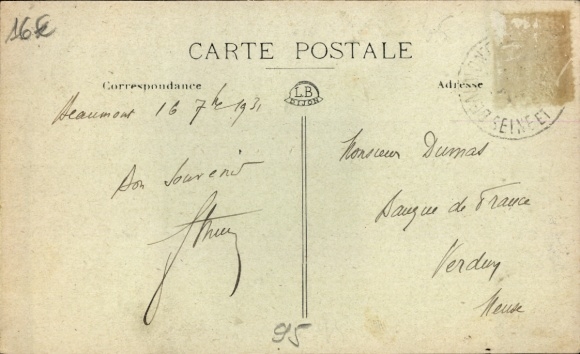 16€
CARTE POSTALE
Correspondance
LB
DIJON
Adresse
SEINE-ET
Beaumont 16 7bre 1931
Monsieur Dumas
Bon Souvenir
Banque de France
Verdun
Meuse
95